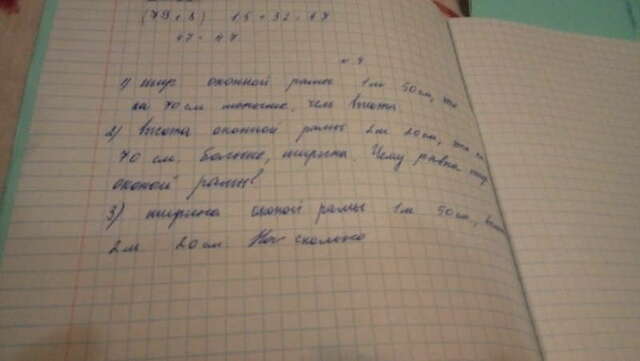 15 + 32 = 47
47 = 47
1) шир оконной рамы 1м 50 см, что
на 70 см меньше, чем высота
2) Высота оконной рамы 2м 20 см, что на
70 см. больше, ширина. Чему равна шир
оконой рамы?
3) ширина оконой рамы 1м 50 см,
2м 20 см. На сколько